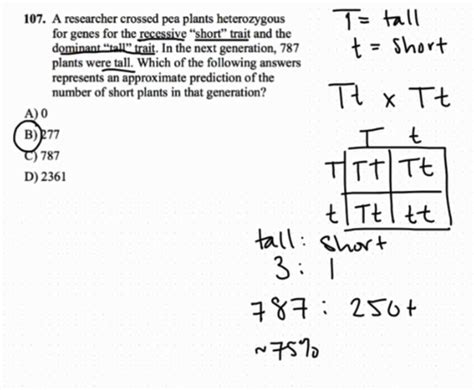 107. A researcher crossed pea plants heterozygous
for genes for the recessive “short” trait and the
dominant “tall” trait. In the next generation, 787
plants were tall. Which of the following answers
represents an approximate prediction of the
number of short plants in that generation?
A) 0
B) 277
C) 787
D) 2361
T = tall
t = short
Tt x Tt
T t
T TT Tt
t Tt tt
tall: short
3 : 1
787 : 250+
~75%